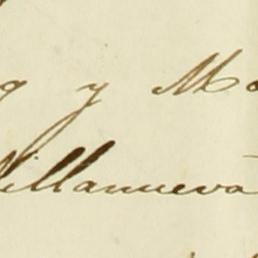 y Mo
Villanueva